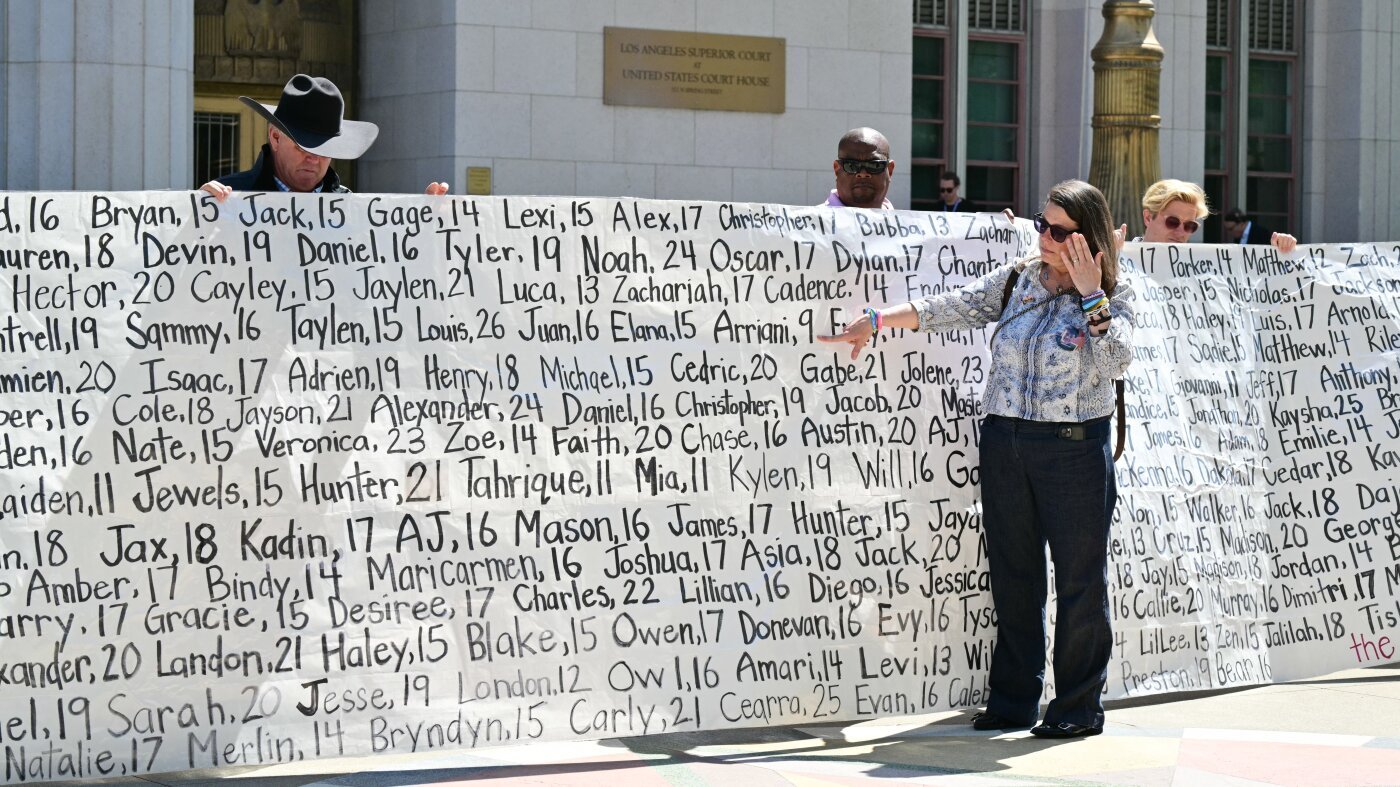 LOS ANGELES SUPERIOR COURT
AT
UNITED STATES COURT HOUSE
16 Bryan, 15 Jack, 15 Gage, 14 Lexi, 15 Alex, 17 Christopher, 17 Bubba, 13 Zachary, 17 Parker, 14 Matthew, 12 Zach, 2
auren, 18 Devin, 19 Daniel, 16 Tyler, 19 Noah, 24 Oscar, 17 Dylan, 17 Jasper, 15 Nicholas, 17 Jackson
Hector, 20 Cayley, 15 Jaylen, 21 Luca, 13 Zachariah, 17 Cadence, 14 18 Haley, 19 Luis, 17 Arnold
ntrell, 19 Sammy, 16 Taylen, 15 Louis, 26 Juan, 16 Elana, 15 Arriani, 9 17 Sadie, 15 Matthew, 14 Rile
mien, 20 Isaac, 17 Adrien, 19 Henry, 18 Michael, 15 Cedric, 20 Gabe, 21 Jolene, 23 17 Giovanni, 11 Jeff, 17 Anthony,
per, 16 Cole, 18 Jayson, 21 Alexander, 24 Daniel, 16 Christopher, 19 Jacob, 20 Jonathan, 20 Kaysha, 25
den, 16 Nate, 15 Veronica, 23 Zoe, 14 Faith, 20 Chase, 16 Austin, 20 AJ, James, 16 Adam, 18 Emilie, 14 J
aiden, 11 Jewels, 15 Hunter, 21 Tahrique, 11 Mia, 11 Kylen, 19 Will, 16 16 Dakota, 17 Cedar, 18 Kay
n, 18 Jax, 18 Kadin, 17 AJ, 16 Mason, 16 James, 17 Hunter, 15 Von, 15 Walker, 16 Jack, 18 Dai
Amber, 17 Bindy, 14 Maricarmen, 16 Joshua, 17 Asia, 18 Jack, 20 13 Cruz, 15 Madison, 20 Georg
arry, 17 Gracie, 15 Desiree, 17 Charles, 22 Lillian, 16 Diego, 16 Jessica 18 Jay, 15 18 Jordan, 14
xander, 20 Landon, 21 Haley, 15 Blake, 15 Owen, 17 Donevan, 16 Evy, 16 Tyso 16 Callie, 20 Murray, 16 Dimitri, 17 M
el, 19 Sarah, 20 Jesse, 19 London, 12 Owl, 16 Amari, 14 Levi, 13 Wil 14 LilLee, 13 Zen, 15 Jalilah, 18 Tis
Natalie, 17 Merlin, 14 Bryndyn, 15 Carly, 21 Cearra, 25 Evan, 16 Caleb Preston, 19 Bear, 16
the